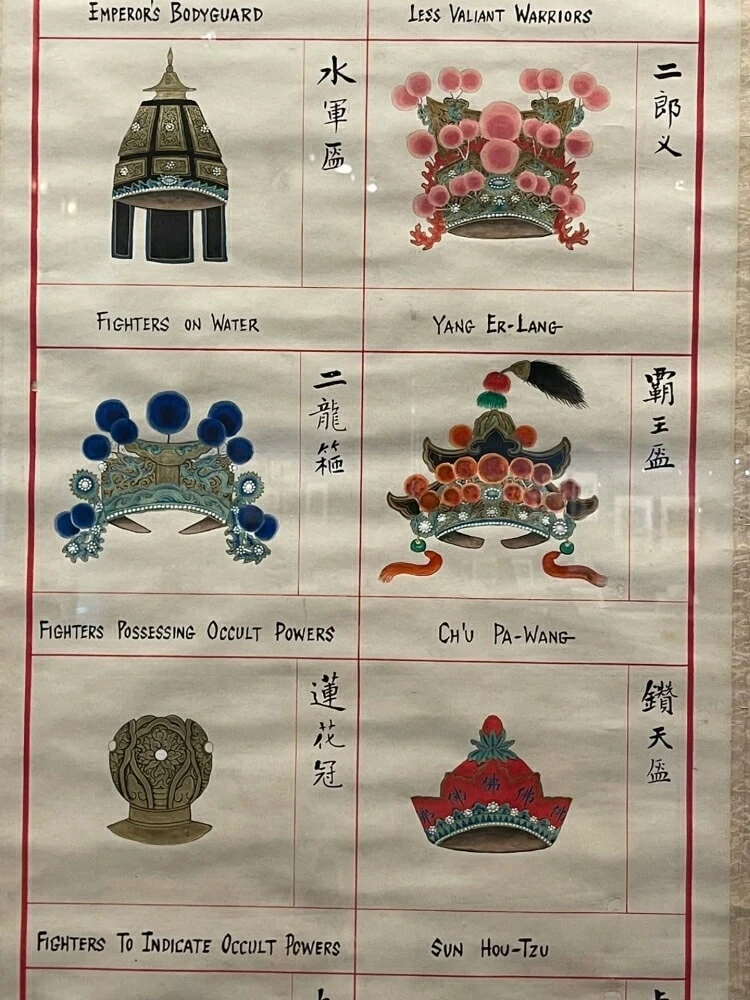 EMPEROR'S BODYGUARD
LESS VALIANT WARRIORS
水軍盔
二郎叉
FIGHTERS ON WATER
YANG ER-LANG
二龍箍
霸王盔
FIGHTERS POSSESSING OCCULT POWERS
CH'U PA-WANG
蓮花冠
佛 佛 佛 佛 佛
鑽天盔
FIGHTERS TO INDICATE OCCULT POWERS
SUN HOU-TZU